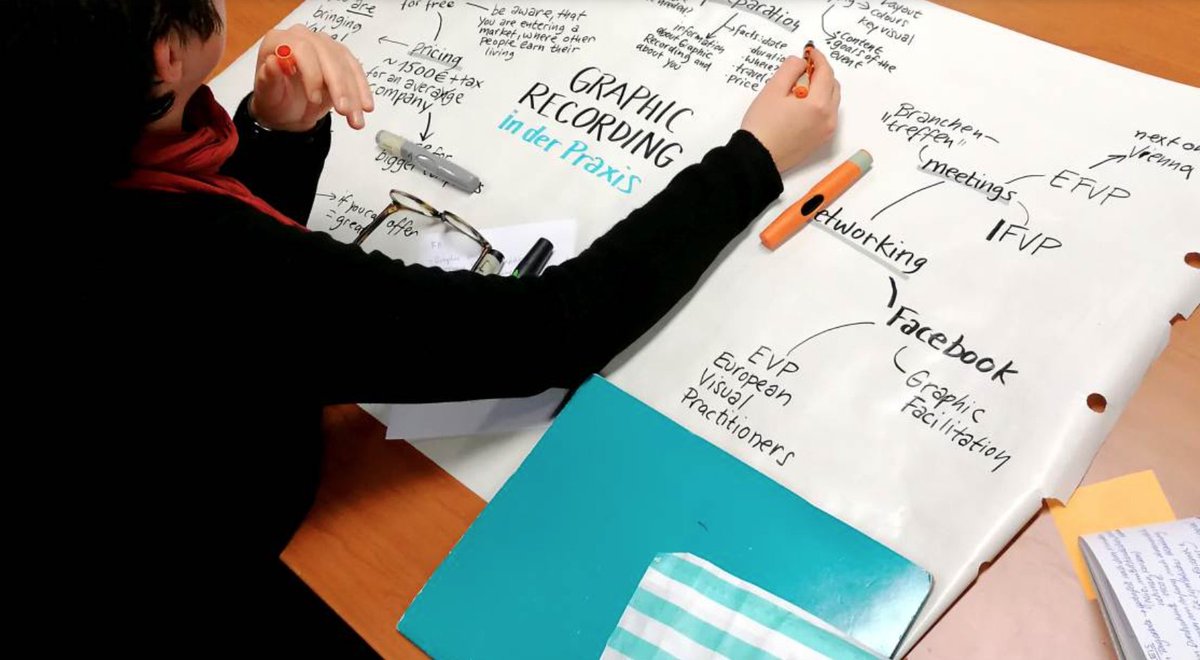 you are
bringing
value
for free
be aware, that
you are entering a
market, where other
people earn their
living
Pricing
~1500€+tax
for an average
company
for
bigger
→ if you can offer
= great
GRAPHIC
RECORDING
in der Praxis
→ Information
about Graphic
Recording and
about you
facts: date
duration
where?
travel
price
layout
colours
key visual
content
goals of the
event
Branchen-
"treffen"
meetings
EFVP
next on
Vienna
IFVP
networking
Facebook
EVP
European
Visual
Practitioners
Graphic
Facilitation